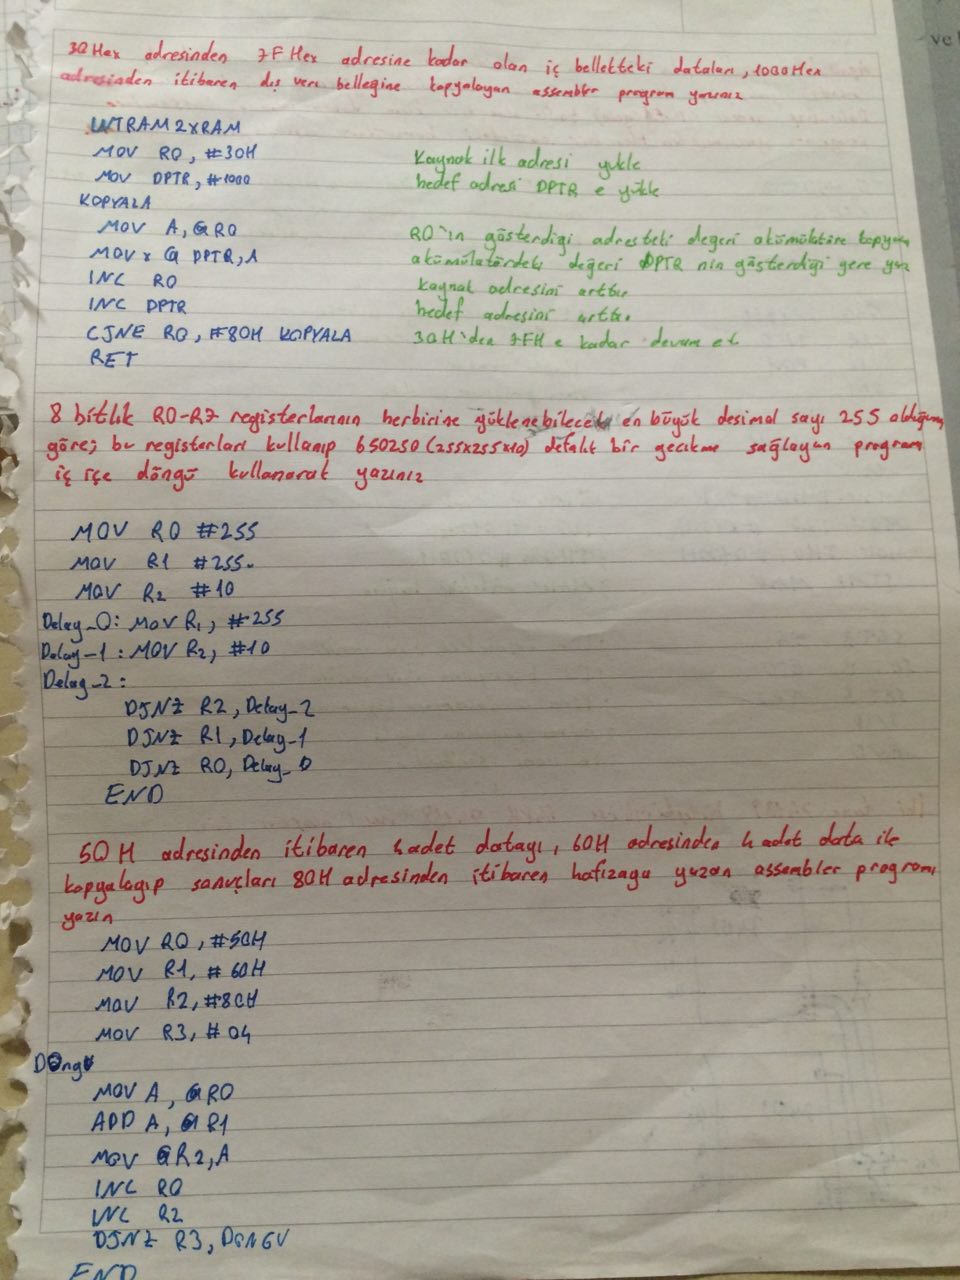 30 Hex adresinden 7F Hex adresine kadar olan iç bellekteki dataları, 1000 Hex
adresinden itibaren dış veri belleğine kopyalayan assembler program yazınız
INTRAM2XRAM
MOV R0, #30H Kaynak ilk adresi yükle
MOV DPTR, #1000 hedef adresi DPTR e yükle
KOPYALA
MOV A, @R0 R0'ın gösterdiği adresteki değeri akümülatöre kopyala
MOVx @ DPTR, A akümülatördeki değeri DPTR nin gösterdiği yere yaz
INC R0 kaynak adresini arttır
INC DPTR hedef adresini arttır
CJNE R0, #80H KOPYALA 30H'den 7FH e kadar devam et
RET
8 bitlik R0-R7 registerlarının herbirine yüklenebilecek en büyük desimal sayı 255 olduğuna
göre; bu registerları kullanıp 650250 (255x255x10) defalık bir gecikme sağlayan program
iç içe döngü kullanarak yazınız
MOV R0 #255
MOV R1 #255
MOV R2 #10
Delay_0: MOV R1, #255
Delay_1: MOV R2, #10
Delay_2:
DJNZ R2, Delay_2
DJNZ R1, Delay_1
DJNZ R0, Delay_0
END
50H adresinden itibaren 4 adet datayı, 60H adresinden 4 adet data ile
kopyalayıp sonuçları 80H adresinden itibaren hafızaya yazan assembler programı
yazın
MOV R0, #50H
MOV R1, #60H
MOV R2, #80H
MOV R3, #04
DÖngü
MOV A, @R0
ADD A, @R1
MOV @R2, A
INC R0
INC R2
DJNZ R3, DONGU
END